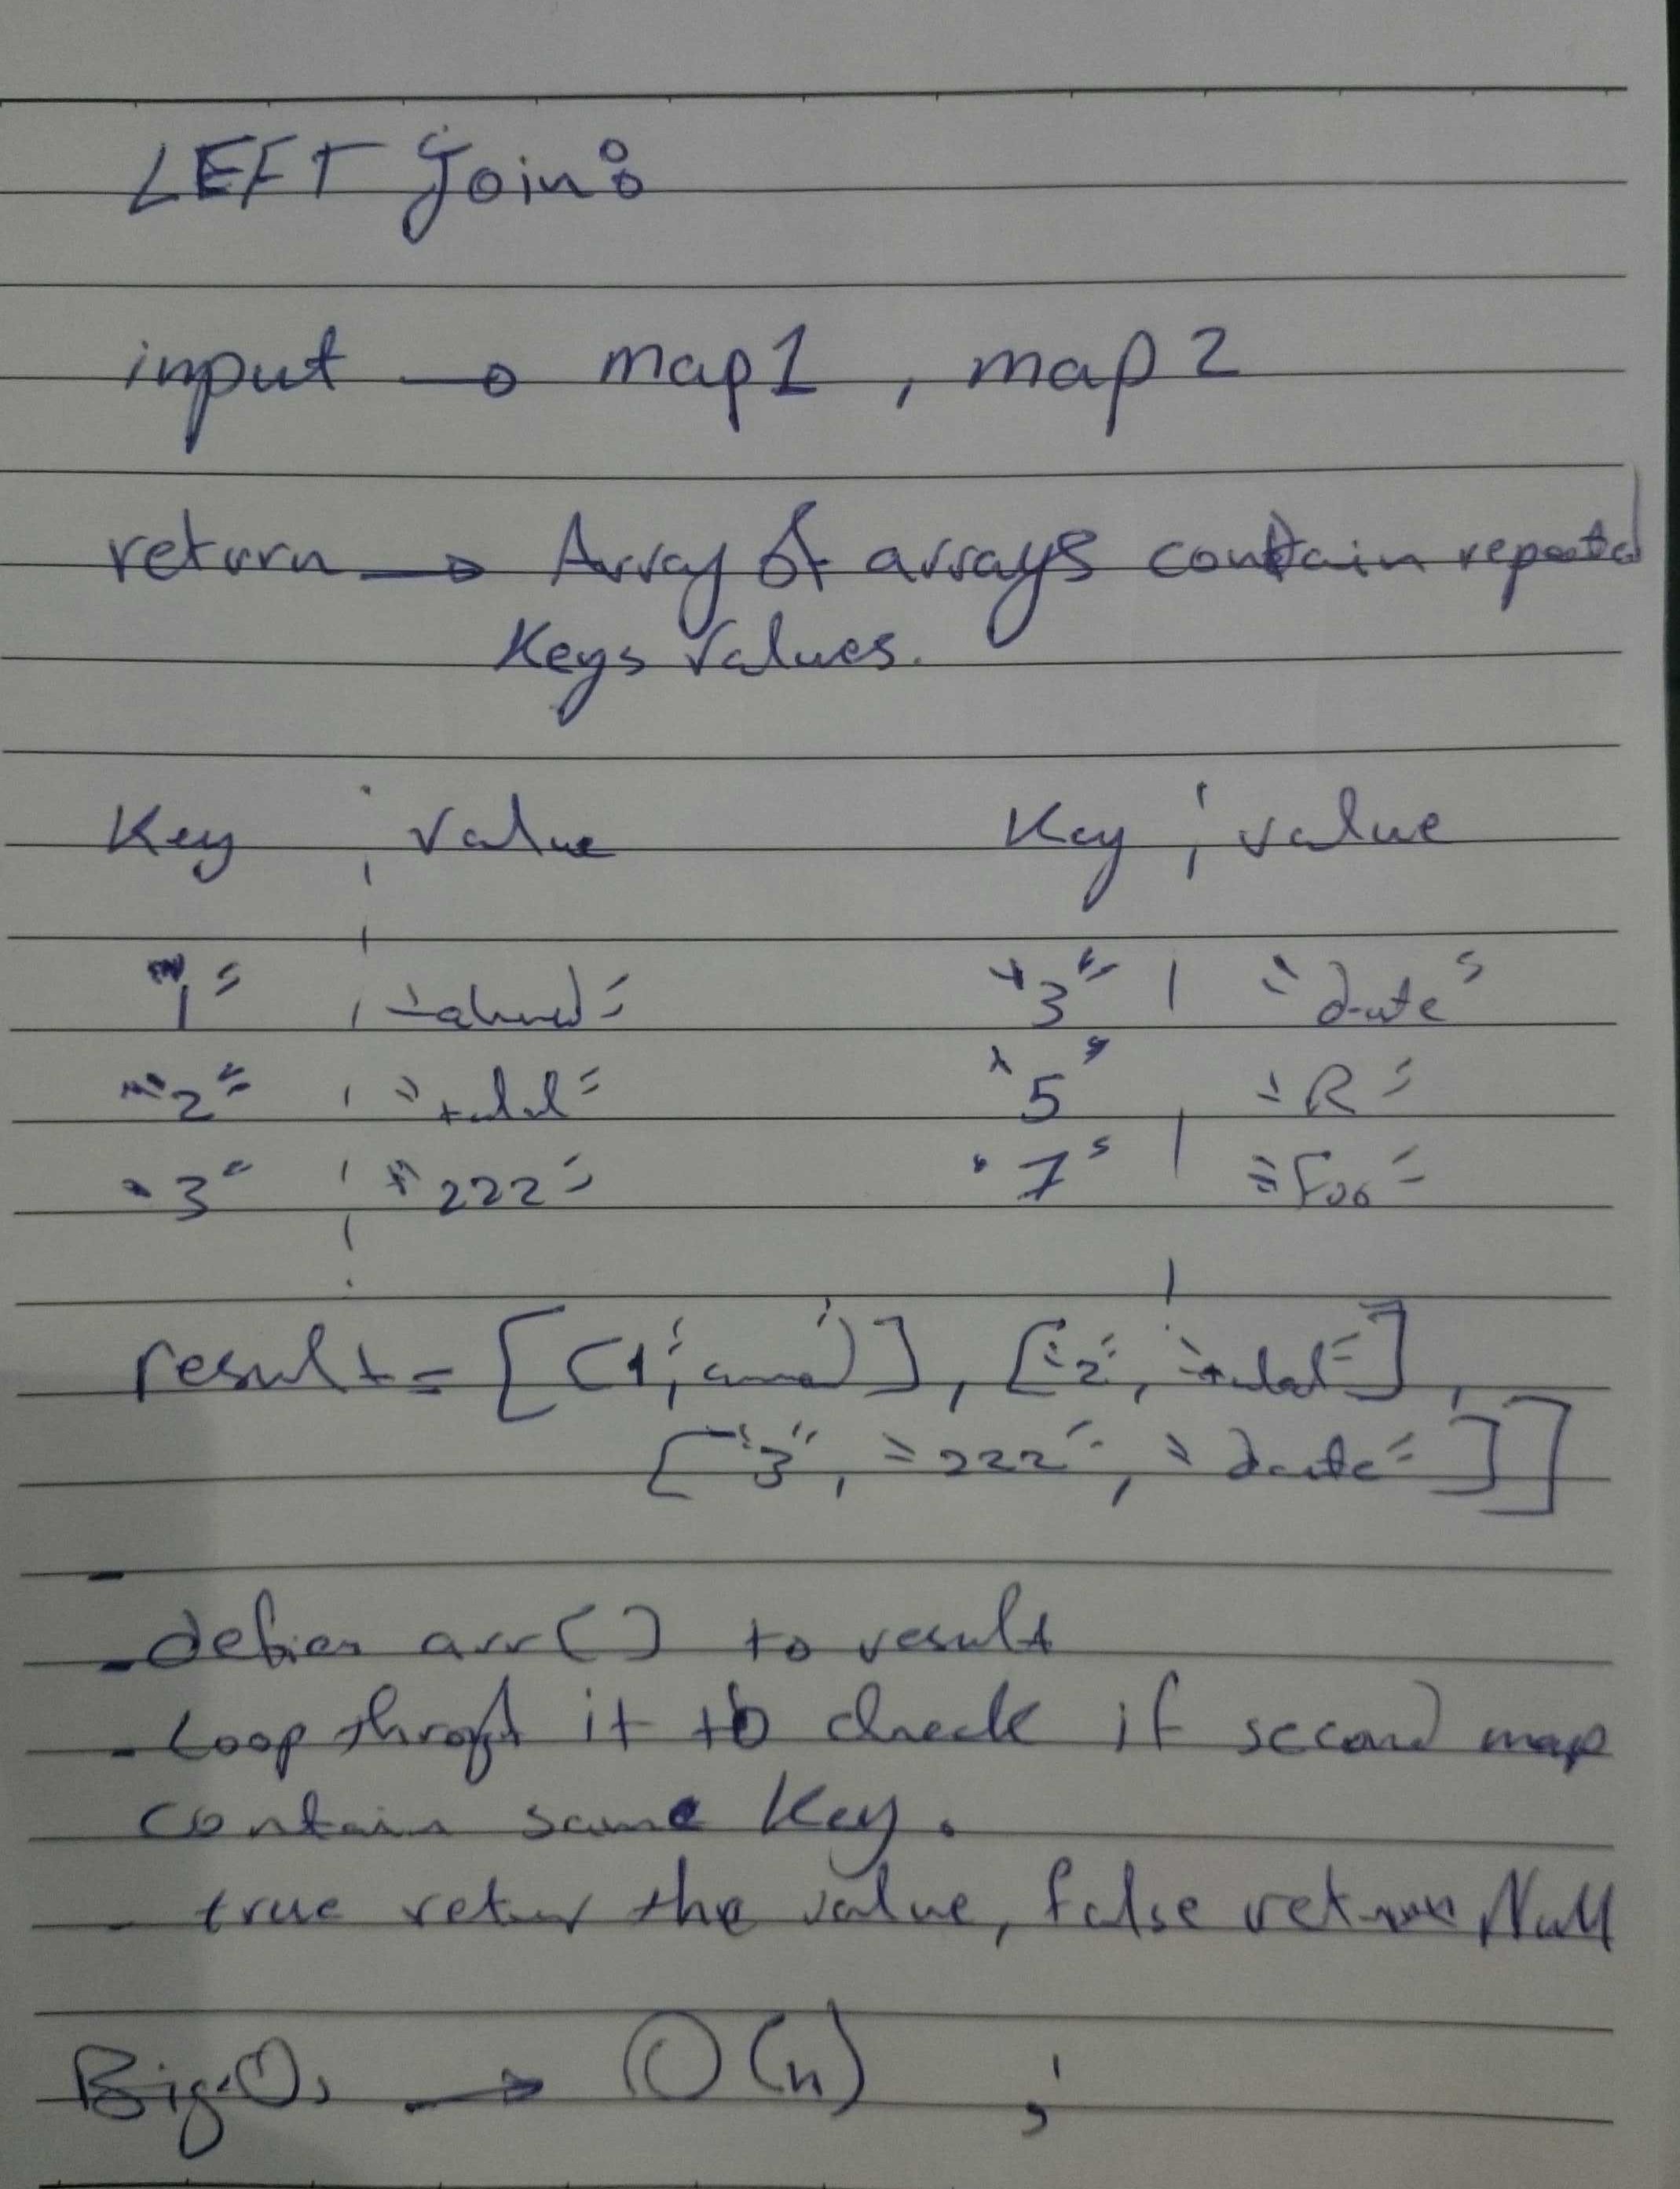 LEFT Join:
input → map1 , map2
return → Array of arrays contain repeated
Keys Values.
Key | Value Key | value
"1" | "ahmed" "3" | "date"
"2" | "talal" "5" | "R"
"3" | "222" "7" | "Foo"
result = [[1, ], ["2", "talal"],
["3", "222", "date"]]
- arr[] to result
- Loop it to check if second map
contain same Key.
- true return the value, false return Null
Big.O, → O(n) ;